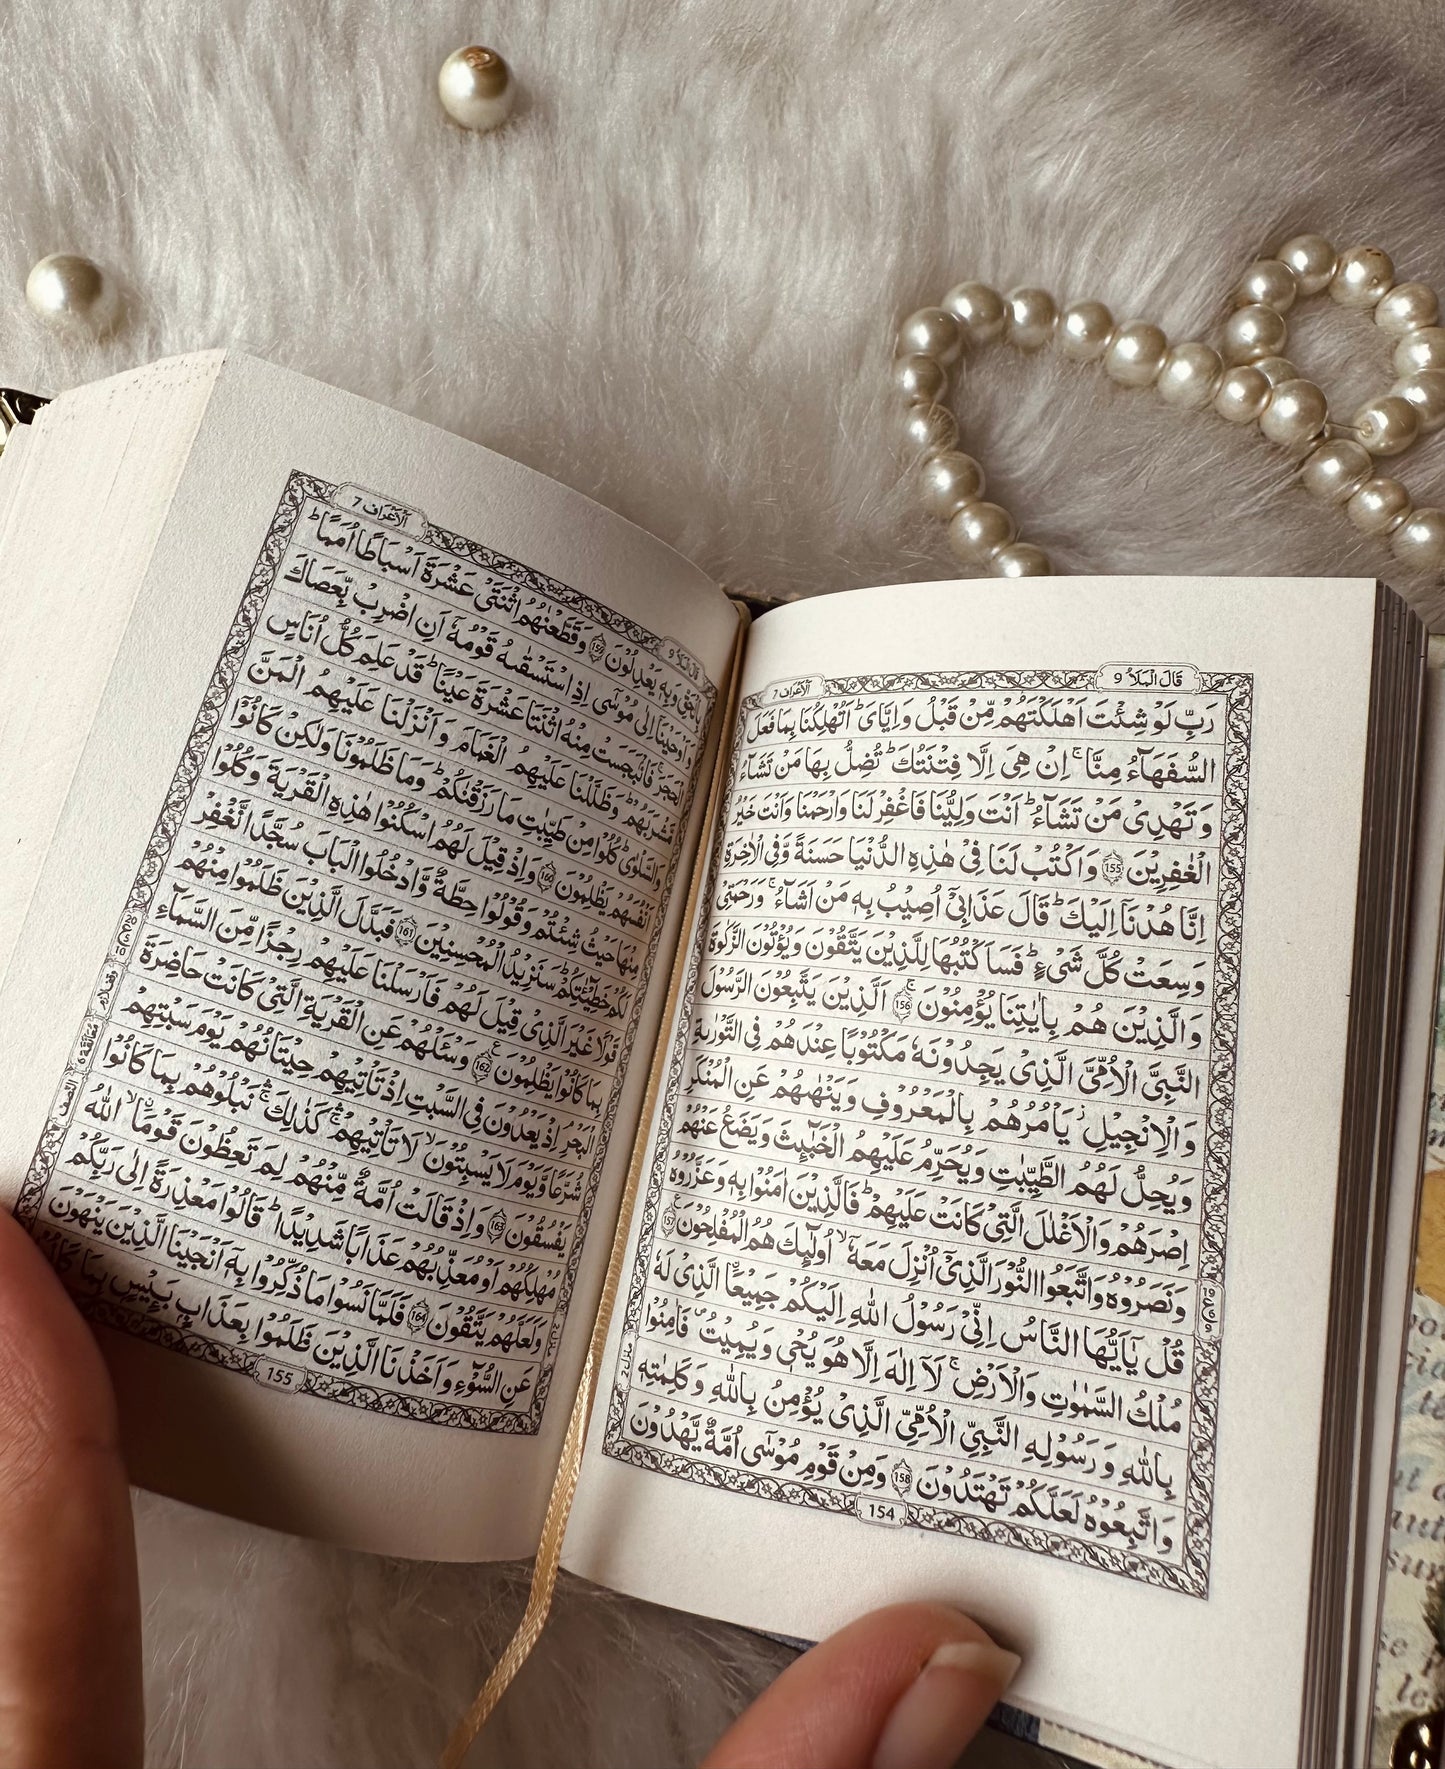 قَالَ الْمَلَاُ 9
اَلْاَعْرَاف 7
رَبِّ لَوْ شِئْتَ اَهْلَكْتَهُمْ مِّنْ قَبْلُ وَاِيَّايَ ؕ اَتُهْلِكُنَا بِمَا فَعَلَ
السُّفَهَآءُ مِنَّا ۚ اِنْ هِيَ اِلَّا فِتْنَتُكَ ؕ تُضِلُّ بِهَا مَنْ تَشَآءُ
وَتَهْدِيْ مَنْ تَشَآءُ ؕ اَنْتَ وَلِيُّنَا فَاغْفِرْ لَنَا وَارْحَمْنَا وَاَنْتَ خَيْرُ
الْغٰفِرِيْنَ 155 وَاكْتُبْ لَنَا فِيْ هٰذِهِ الدُّنْيَا حَسَنَةً وَّفِي الْاٰخِرَةِ
اِنَّا هُدْنَآ اِلَيْكَ ؕ قَالَ عَذَابِيْٓ اُصِيْبُ بِهٖ مَنْ اَشَآءُ ۚ وَرَحْمَتِيْ
وَسِعَتْ كُلَّ شَيْءٍ ؕ فَسَاَكْتُبُهَا لِلَّذِيْنَ يَتَّقُوْنَ وَيُؤْتُوْنَ الزَّكٰوةَ
وَالَّذِيْنَ هُمْ بِاٰيٰتِنَا يُؤْمِنُوْنَ 156 اَلَّذِيْنَ يَتَّبِعُوْنَ الرَّسُوْلَ
النَّبِيَّ الْاُمِّيَّ الَّذِيْ يَجِدُوْنَهٗ مَكْتُوْبًا عِنْدَهُمْ فِي التَّوْرٰىةِ
وَالْاِنْجِيْلِ ؗ يَاْمُرُهُمْ بِالْمَعْرُوْفِ وَيَنْهٰىهُمْ عَنِ الْمُنْكَرِ
وَيُحِلُّ لَهُمُ الطَّيِّبٰتِ وَيُحَرِّمُ عَلَيْهِمُ الْخَبٰٓئِثَ وَيَضَعُ عَنْهُمْ
اِصْرَهُمْ وَالْاَغْلٰلَ الَّتِيْ كَانَتْ عَلَيْهِمْ ؕ فَالَّذِيْنَ اٰمَنُوْا بِهٖ وَعَزَّرُوْهُ
وَنَصَرُوْهُ وَاتَّبَعُوا النُّوْرَ الَّذِيْٓ اُنْزِلَ مَعَهٗٓ ۙ اُولٰٓئِكَ هُمُ الْمُفْلِحُوْنَ 157
قُلْ يٰٓاَيُّهَا النَّاسُ اِنِّيْ رَسُوْلُ اللّٰهِ اِلَيْكُمْ جَمِيْعَا ۨ الَّذِيْ لَهٗ
مُلْكُ السَّمٰوٰتِ وَالْاَرْضِ ۚ لَآ اِلٰهَ اِلَّا هُوَ يُحْيٖ وَيُمِيْتُ ۪ فَاٰمِنُوْا
بِاللّٰهِ وَرَسُوْلِهِ النَّبِيِّ الْاُمِّيِّ الَّذِيْ يُؤْمِنُ بِاللّٰهِ وَكَلِمٰتِهٖ
وَاتَّبِعُوْهُ لَعَلَّكُمْ تَهْتَدُوْنَ 158 وَمِنْ قَوْمِ مُوْسٰٓى اُمَّةٌ يَّهْدُوْنَ
منزل 2
154
قَالَ الْمَلَاُ 9
اَلْاَعْرَاف 7
بِالْحَقِّ وَبِهٖ يَعْدِلُوْنَ 159 وَقَطَّعْنٰهُمُ اثْنَتَيْ عَشْرَةَ اَسْبَاطًا اُمَمًا ؕ
وَاَوْحَيْنَآ اِلٰى مُوْسٰٓى اِذِ اسْتَسْقٰىهُ قَوْمُهٗٓ اَنِ اضْرِبْ بِّعَصَاكَ
الْحَجَرَ ۚ فَانْۢبَجَسَتْ مِنْهُ اثْنَتَا عَشْرَةَ عَيْنًا ؕ قَدْ عَلِمَ كُلُّ اُنَاسٍ
مَّشْرَبَهُمْ ؕ وَظَلَّلْنَا عَلَيْهِمُ الْغَمَامَ وَاَنْزَلْنَا عَلَيْهِمُ الْمَنَّ
وَالسَّلْوٰى ؕ كُلُوْا مِنْ طَيِّبٰتِ مَا رَزَقْنٰكُمْ ؕ وَمَا ظَلَمُوْنَا وَلٰكِنْ كَانُوْٓا
اَنْفُسَهُمْ يَظْلِمُوْنَ 160 وَاِذْ قِيْلَ لَهُمُ اسْكُنُوْا هٰذِهِ الْقَرْيَةَ وَكُلُوْا
مِنْهَا حَيْثُ شِئْتُمْ وَقُوْلُوْا حِطَّةٌ وَّادْخُلُوا الْبَابَ سُجَّدًا نَّغْفِرْ
لَكُمْ خَطِيْٓـٰٔتِكُمْ ؕ سَنَزِيْدُ الْمُحْسِنِيْنَ 161 فَبَدَّلَ الَّذِيْنَ ظَلَمُوْا مِنْهُمْ
قَوْلًا غَيْرَ الَّذِيْ قِيْلَ لَهُمْ فَاَرْسَلْنَا عَلَيْهِمْ رِجْزًا مِّنَ السَّمَآءِ
بِمَا كَانُوْا يَظْلِمُوْنَ 162 وَسْـَٔلْهُمْ عَنِ الْقَرْيَةِ الَّتِيْ كَانَتْ حَاضِرَةَ
الْبَحْرِ ۘ اِذْ يَعْدُوْنَ فِي السَّبْتِ اِذْ تَاْتِيْهِمْ حِيْتَانُهُمْ يَوْمَ سَبْتِهِمْ
شُرَّعًا وَّيَوْمَ لَا يَسْبِتُوْنَ ۙ لَا تَاْتِيْهِمْ ۛۚ كَذٰلِكَ ۛۚ نَبْلُوْهُمْ بِمَا كَانُوْا
يَفْسُقُوْنَ 163 وَاِذْ قَالَتْ اُمَّةٌ مِّنْهُمْ لِمَ تَعِظُوْنَ قَوْمَا ۙ ۨ اللّٰهُ
مُهْلِكُهُمْ اَوْ مُعَذِّبُهُمْ عَذَابًا شَدِيْدًا ؕ قَالُوْا مَعْذِرَةً اِلٰى رَبِّكُمْ
وَلَعَلَّهُمْ يَتَّقُوْنَ 164 فَلَمَّا نَسُوْا مَا ذُكِّرُوْا بِهٖٓ اَنْجَيْنَا الَّذِيْنَ يَنْهَوْنَ
عَنِ السُّوْٓءِ وَاَخَذْنَا الَّذِيْنَ ظَلَمُوْا بِعَذَابٍۭ بَـِٔيْسٍۭ بِمَا كَانُوْا
155